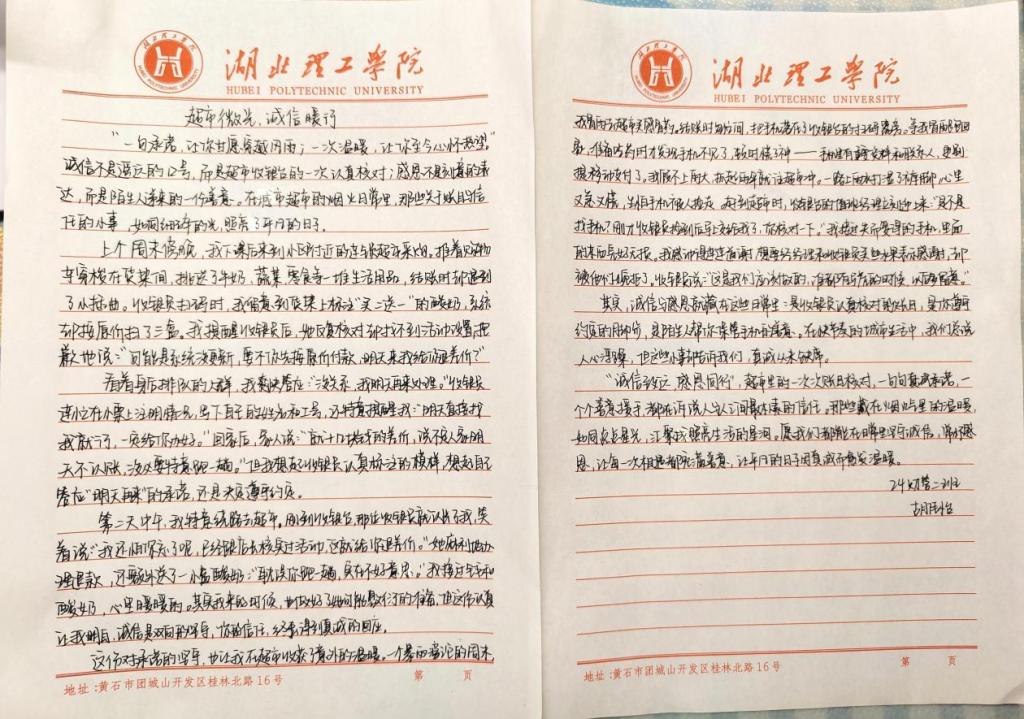 湖北理工学院
HUBEI POLYTECHNIC UNIVERSITY
超市微光,诚信暖行
"一句承诺,让你甘愿穿越风雨;一次温暖,让你至今心怀热望。"
诚信不是遥远的口号,而是超市收银台的一次认真核对;感恩不是刻意的表
达,而是陌生人递来的一份善意。在城市超市的烟火日常里,那些关于账目与信
任的小事,如同细碎的光,照亮了平凡的日子。
上个周末傍晚,我下课后来到小区附近的连锁超市采购。推着购物
车穿梭在货架间,挑选了牛奶、蔬菜、零食等一堆生活用品,结账时却遇到
了小插曲。收银员扫码时,我留意到货架上标注"买二送一"的酸奶,系统
却按原价扫了三盒。我提醒收银员后,她反复核对却找不到活动设置,抱
歉地说:"可能是系统没更新,要不你先按原价付款,明天来我给你退差价?"
看着身后排队的人群,我爽快答应:"没关系,我明天再来处理。"收银员
连忙在小票上注明情况,留下自己的姓名和工号,还特意提醒我:"明天直接找
我就行,一定给你办好。"回家后,家人说:"就十几块钱的差价,说不定人家明
天不认账,没必要特意跑一趟。"但我想起收银员认真标注的模样,想起自己
答应"明天再来"的承诺,还是决定遵守约定。
第二天中午,我特意绕路去超市。刚到收银台,那位收银员就认出了我,笑
着说:"我还怕你忘了呢,已经跟店长核实过活动,这就给你退差价。"她麻利地办
理退款,还额外送了一小盒酸奶:"耽误你跑一趟,实在不好意思。"我接过钱和
酸奶,心里暖暖的。其实我来的时候,也做好了她可能敷衍了的准备,但这份认真
让我明白,诚信是双向的坚守,你的信任,终会得到真诚的回应。
这份对承诺的坚守,也让我在超市收获了意外的温暖。一个暴雨滂沱的周末,
地址:黄石市团城山开发区桂林北路16号 第 页
湖北理工学院
HUBEI POLYTECHNIC UNIVERSITY
我冒雨去超市买感冒药。结账时匆忙间,把手机落在了收银台的扫码器旁。等我冒雨跑回
家,准备吃药时才发现手机不见了,顿时慌了神——手机里有重要文件和联系人,更别
提移动支付了。我顾不上雨大,抓起雨伞就往超市冲。一路上雨水打湿了裤脚,心里
又急又慌,生怕手机被人捡走。跑到超市时,收银台的值班经理立刻迎上来:"是不是
找手机?刚才收银员捡到后马上交给我了,你核对一下。"我接过失而复得的手机,里面
的东西完好无损。我感动得连连道谢,想要给经理和收银员买些水果表示感谢,却
被他们婉拒了,收银员说:"这是我们应该做的,谁都有着急的时候,以后多留意。"
其实,诚信与感恩就藏在这些日常里:是收银员认真核对的账目,是你遵守
约定的脚步,是陌生人帮你保管手机的善意。在快节奏的城市生活中,我们总说
人心浮躁,但这些小事却告诉我们,真诚从未缺席。
"诚信致远,感恩同行",超市里的一次次账目核对,一句句真诚承诺,一
个个善意援手,都在诉说人与人之间最朴素的信任。那些藏在烟火里的温暖,
如同点点星光,汇聚成照亮生活的星河。愿我们都能在日常里坚守诚信,常怀感
恩,让每一次相遇都充满善意,让平凡的日子因真诚而愈发温暖。
24财管二班
胡雨怡
地址:黄石市团城山开发区桂林北路16号 第 页